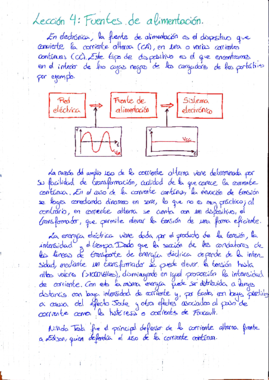 Lección 4: Fuentes de alimentación.
En electrónica, la fuente de alimentación es el dispositivo que
convierte la corriente alterna (CA), en una o varias corrientes
continuas (CC). Este tipo de dispositivo es el que encontramos
en el interior de las cajas negras de los cargadores de los portátiles
por ejemplo.
Red eléctrica
Fuente de alimentación
Sistema electrónico
La razón del amplio uso de la corriente alterna viene determinada por
su facilidad de transformación, cualidad de la que carece la corriente
continua. En el caso de la corriente continua, la elevación de tensión
se logra conectando dinamos en serie, lo que no es muy práctico; al
contrario, en corriente alterna se cuenta con un dispositivo, el
transformador, que permite elevar la tensión de una forma eficiente.
La energía eléctrica viene dada por el producto de la tensión, la
intensidad y el tiempo. Dado que la sección de los conductores de
las líneas de transporte de energía eléctrica depende de la inten-
sidad, mediante un transformador se puede elevar la tensión hasta
altos valores disminuyendo en igual proporción la intensidad
de corriente. Con esto la misma energía puede ser distribuida a largas
distancias con bajas intensidad de corriente y, por tanto con bajas pérdidas
a causa del efecto Joule y otros efectos asociados al paso de
corriente como la histéresis o corrientes de Foucault.
Nikola Tesla fue el principal defensor de la corriente alterna frente
a Edison, quien defendía el uso de la corriente continua.